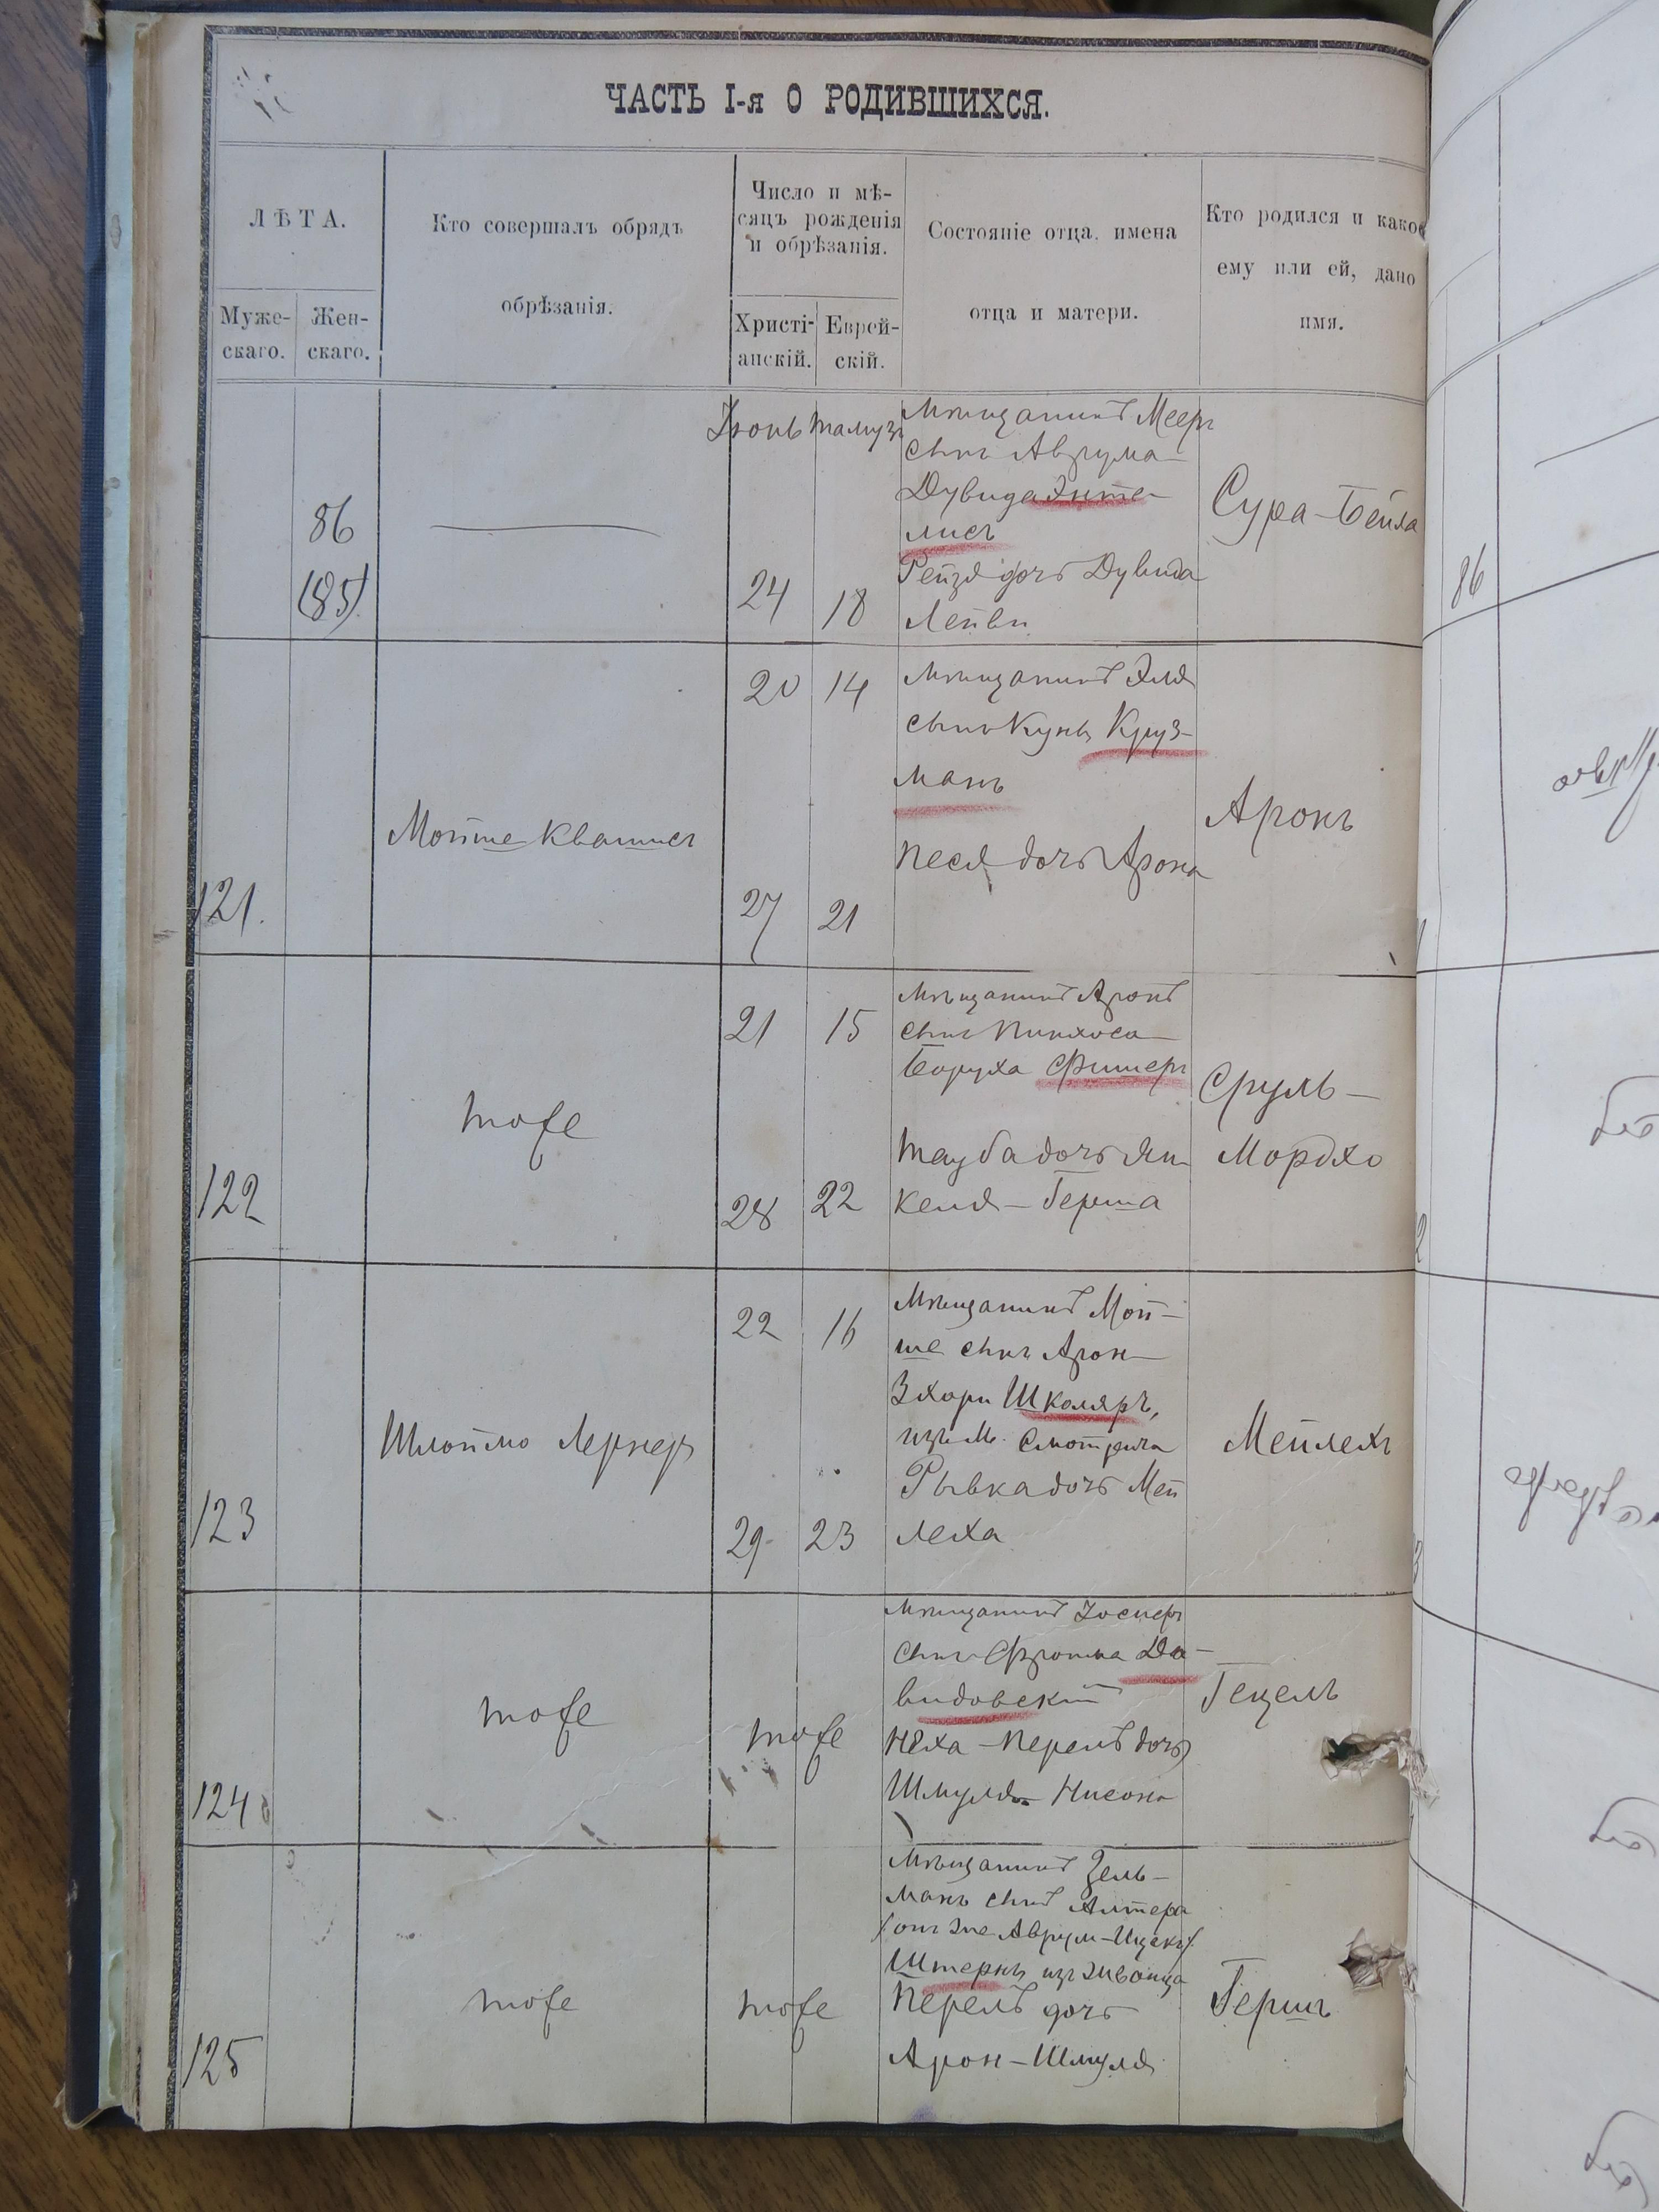 ЧАСТЬ I-я О РОДИВШИХСЯ.
ЛѢТА.
Муже-
скаго.
Жен-
скаго.
Кто совершалъ обрядъ
обрѣзанія.
Число и мѣ-
сяцъ рожденія
и обрѣзанія.
Христі-
анскій.
Еврей-
скій.
Состояніе отца, имена
отца и матери.
Кто родился и какое
ему или ей, дано
имя.
86
(85)
Іюнь Тамузъ
24 18
Мѣщанинъ Мееръ
сынъ Аврума
Дувида Энте-
лисъ
Рейзя дочь Дувида
Лейви
Сура-Бейла
121.
Мойше Квашисъ
20 14
27 21
Мѣщанинъ Эля
сынъ Куны Круз-
манъ
Песя дочь Арона
Аронъ
122
тоже
21 15
28 22
Мѣщанинъ Аронъ
сынъ Пинхоса
Боруха Фишеръ
Тауба дочь Ян-
келя-Герша
Сруль-
Мордхо
123
Шлоймо Лернеръ
22 16
29 23
Мѣщанинъ Мой-
ше сынъ Арон-
Зхари Школяръ,
изъ м. Смотрича
Рывка дочь Мей
леха
Мейлехъ
124
тоже
тоже
Мѣщанинъ Іосиферъ
сынъ Фроима Да-
видовскій
Нѣха-Перель дочь
Шмуля Нисона
Гецель
125
тоже
тоже
Мѣщанинъ Зель-
манъ сынъ Алтера
(онъ же Аврум-Ицекъ)
Штернъ изъ Жванца
Перель дочь
Арон-Шмуля
Гершъ
86